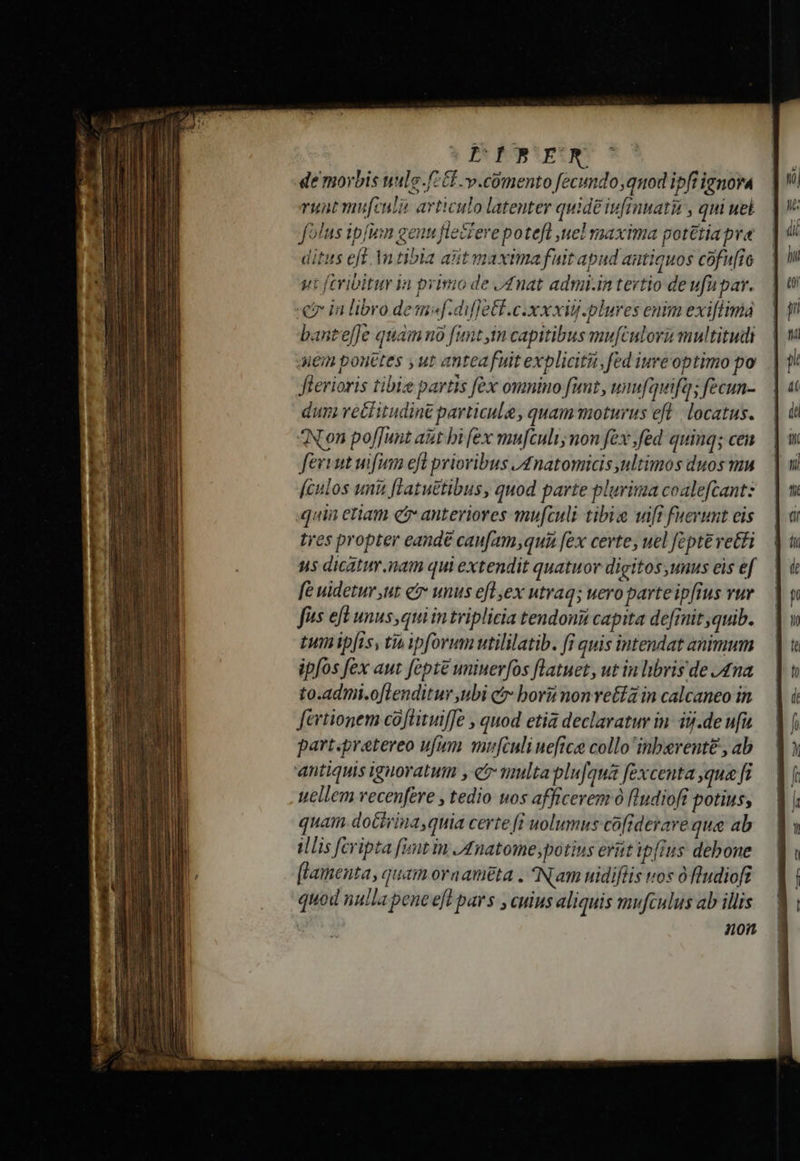 LIBER
de morbis uulg.sect.v.cōmento secundo,quod ipsi ignora
runt musculū articulo latenter quidē insinuatū, qui uel
solus ipsum genu flectere potest,uel maxima potētia præ
ditus est. In tibia aūt maxima fuit apud antiquos cōfusio
ut scribitur in primo de Anat admi.in tertio de usu par.
& in libro de mus.dissect.c.xxxiij.plures enim existima
bant esse quàm nō sunt,in capitibus musculorū multitudi
nem ponētes, ut antea fuit explicitū, sed iure optimo po
sterioris tibiæ partis sex omnino sunt, unusquisq; secun-
dum rectitudinē particulæ, quam moturus est locatus.
Non possunt aūt hi sex musculi, non sex,sed quinq; cen
seri ut uisum est prioribus Anatomicis,ultimos duos mu
sculos unū statuētibus, quod parte plurima coalescant:
quin etiam & anteriores musculi tibiæ uisi fuerunt eis
tres propter eandē causam,quū sex certe, uel septē recti
us dicātur.nam qui extendit quatuor digitos,unus eis es
se uidetur,ut & unus est,ex utraq; uero parte ipsius rur
sus est unus,qui in triplicia tendonū capita desinit,quib.
tum ipsis, tū ipsorum utililatib. si quis intendat animum
ipsos sex aut septē uniuersos statuet, ut in libris de Ana
to.admi.ostenditur,ubi & horū non rectā in calcaneo in
sertionem cōstituisse, quod etiā declaratur in iij.de usu
part.prætereo usum musculi uesicæ collo inhærentē, ab
antiquis ignoratum, & multa plusquā sexcenta,quæ si
uellem recensere, tedio uos afficerem ò studiosi potius,
quam doctrina,quia certe si uolumus cōsiderare quæ ab
illis scripta sunt in Anatome,potius erūt ipsius deho ne
stamenta, quam ornamēta. Nam uidistis uos ò studiosi
quod nulla pene est pars, cuius aliquis musculus ab illis
non